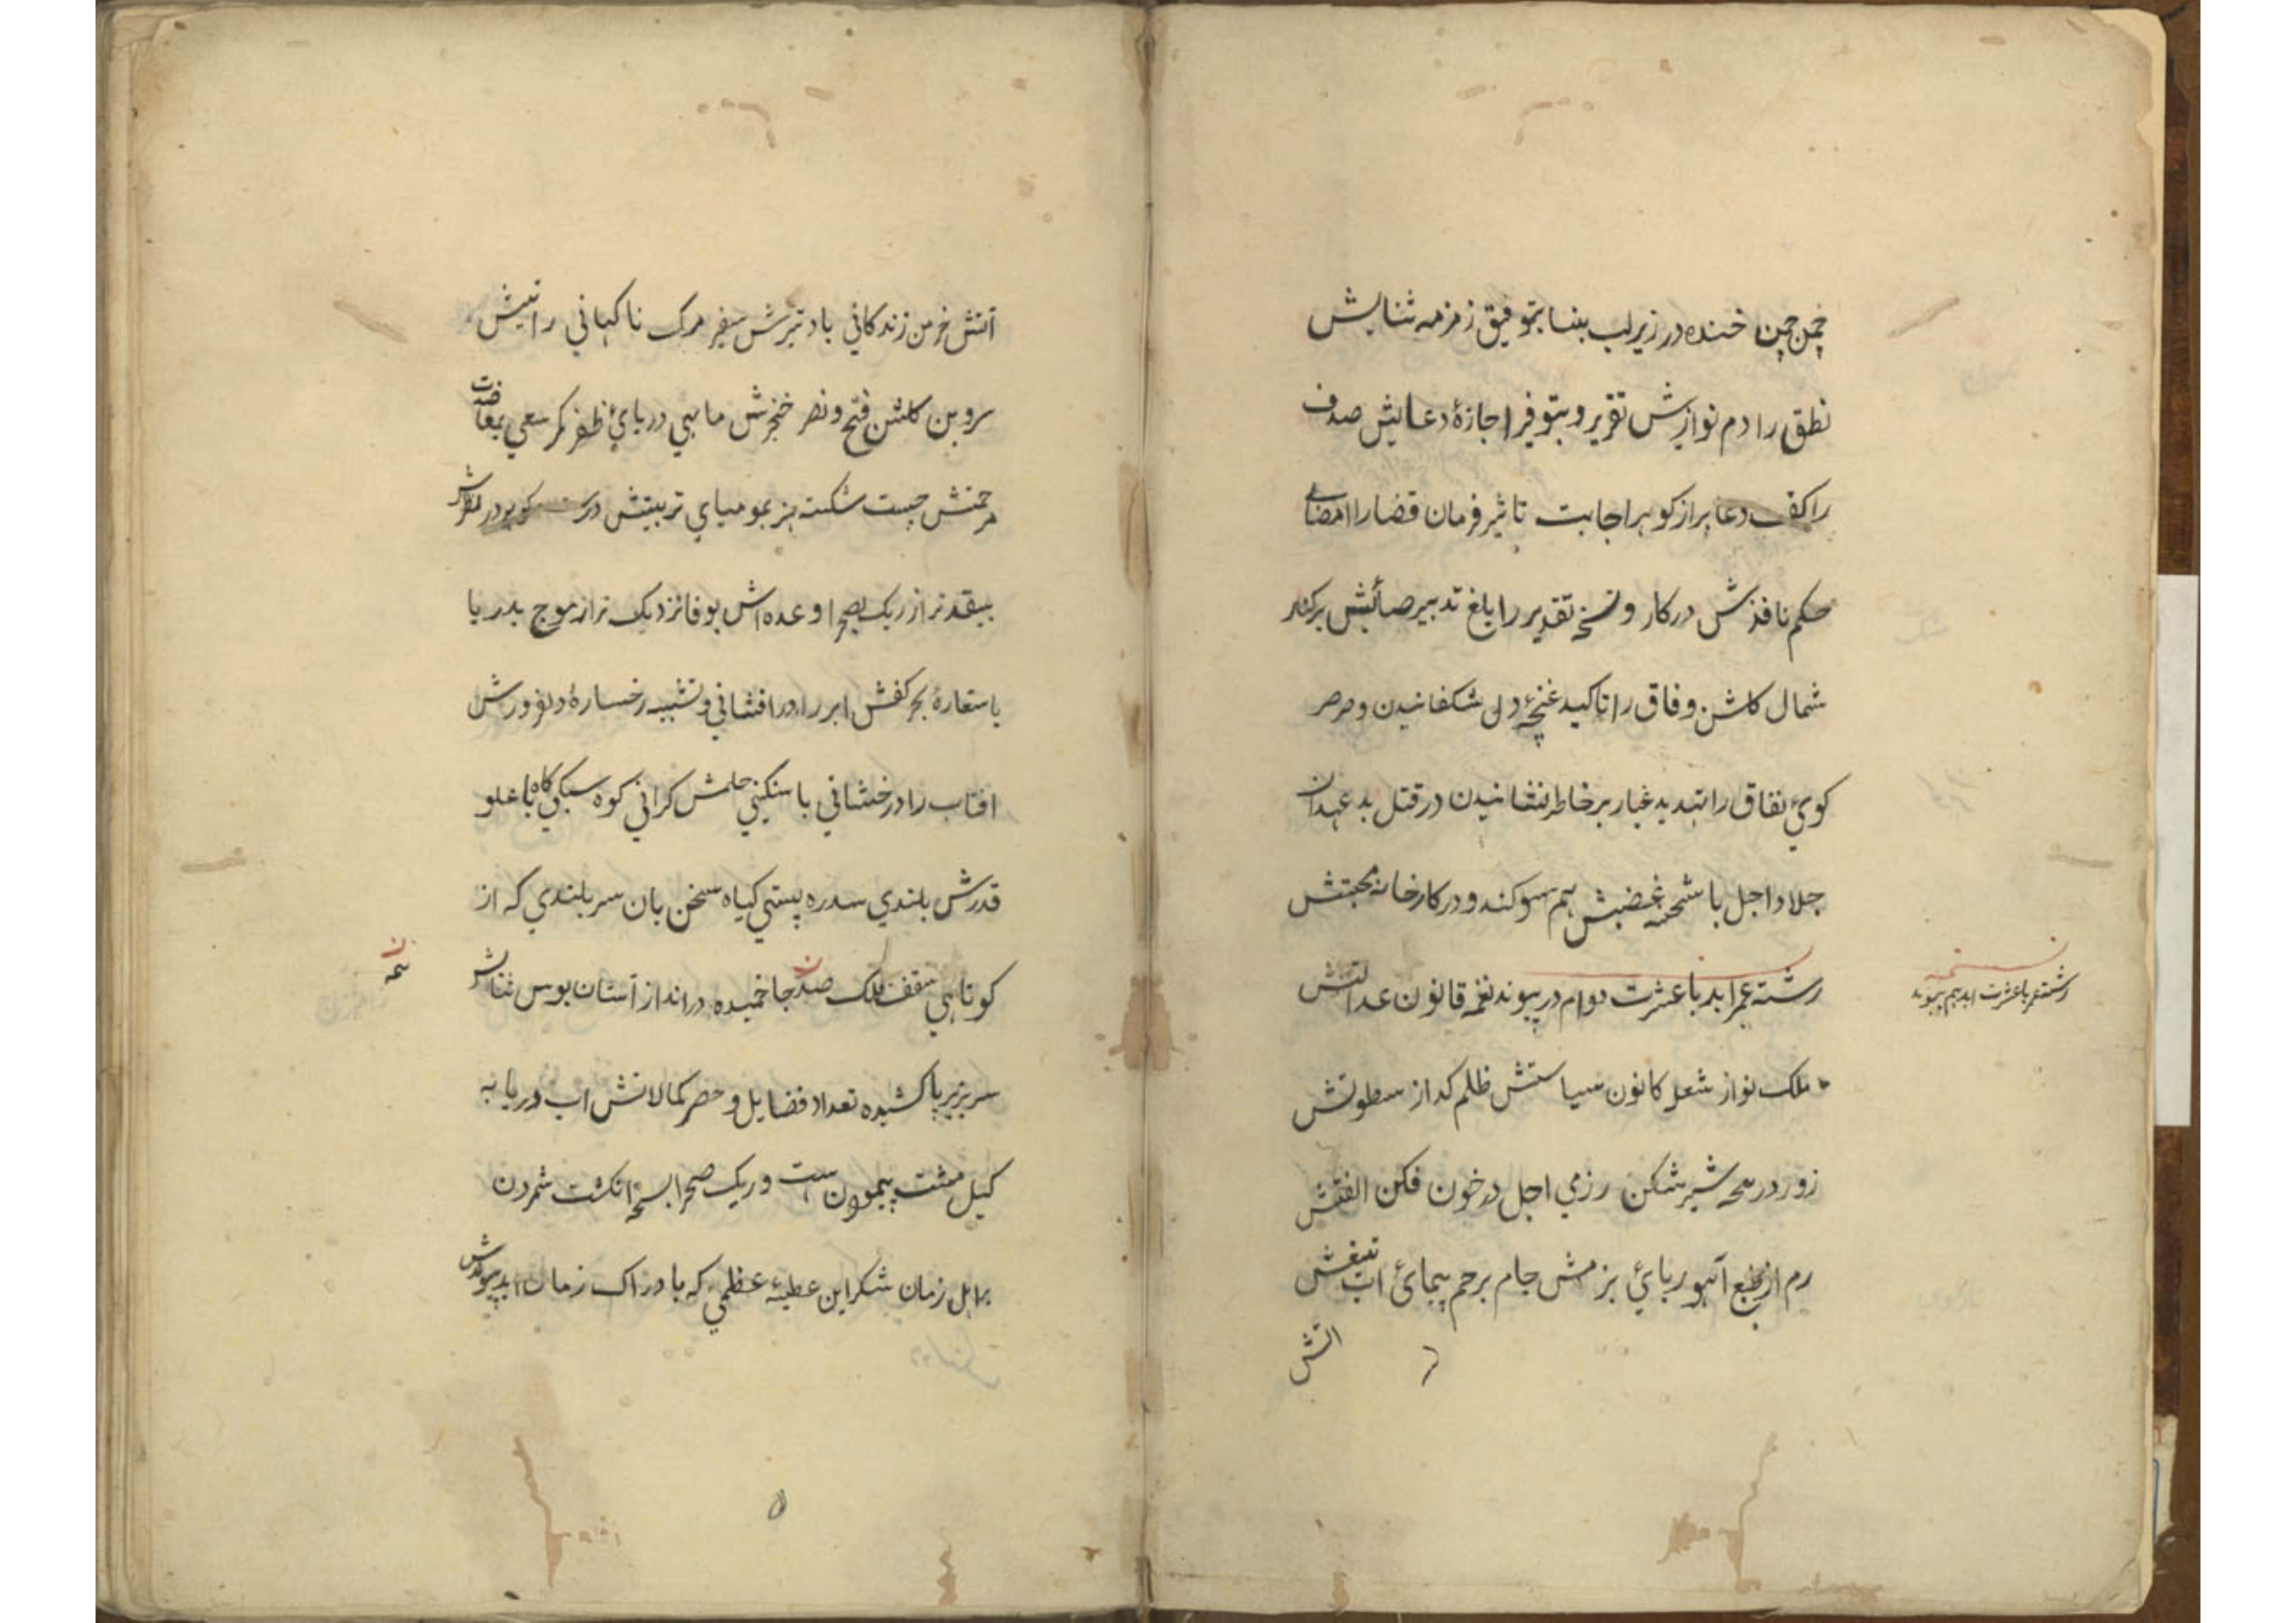 چمن چمن خنده در زیر لب بنسا بتوفیق زمزمه ثنایش
نطق را دم نوازش تقریر و بتوفیر اجازهٔ دعایش صدف
را کف دعا پر از کوهر اجابت تاثیر فرمان قضا را امضای
حکم نافذش در کار و نسخه تقدیر را بلغ تدبیر صائبش بر کنار
شمال کلشن وفاق را تاکید غنچهٔ دل شکفانیدن و صرصر
کوی نفاق را تهدید غبار بر خاطر نشانیدن در قتل بد عهدان
جلاد اجل با شحنه غضبش هم سوکند و در کارخانه محبتش
رشته عمر ابد با عشرت دوام در پیوند نغمه قانون عدالتش
ملک نواز شعله کانون سیاستش ظلم کداز سطوتش
زور در پنجه شیر شکن رزمی اجل در خون فکن الفتش
رم از طبع آهو ربائ بزمش جام بر جم پیمائ آب تیغش
آتش
رشته عمر با عشرت ابد هم پیوند
آتش خرمن زندکانی باد تیرش سفیر مرک ناکهانی رایتش
سرو بن کلشن فتح و نصر خنجرش ماهی دریائ ظفر کمر سعی بمعاضدت
مرحمتش چست شکست هنر بمومیای تربیتش درست کوهر در نظرش
بیقدرتر از ریک بصحرا وعده اش بوفا نزدیک تر از موج بدریا
باستعارهٔ بحر کفش ابر را در افشانی و تشبیه رخسارهٔ دلفروزش
افتاب را درخشانی با سنکینی حلمش کرانی کوه سبکی کاه با علو
قدرش بلندی سدره پستی کیاه سخن بان سربلندی که از
کوتاهی سقف فلک صد جا خمیده در انداز آستان بوس ثنایش
سر بزیر پا کشیده تعداد فضایل و حصر کمالاتش اب دریا به
کیل مشت پیمودن ست و ریک صحرا بسرانکشت شمردن
بر اهل زمان شکر این عطیهٔ عظمی که با دراک زمان ابد پیوندش
۵